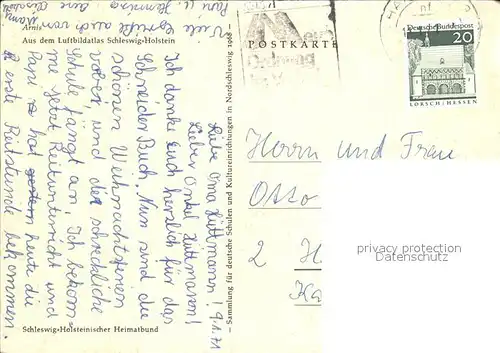 Arnis
Aus dem Luftbildatlas Schleswig-Holstein
9.1.71
Liebe Oma Lüttmann!
Lieber Onkel Lüttmann!
Ich danke Euch herzlich für das
Schneider Buch. Nun sind die
schönen Weihnachtsferien
vorbei und die schreckliche
Schule fängt an. Ich bekom-
me jetzt Reitunterricht und
Papi hat heute die
erste Reitstunde bekommen.
Viele Grüße auch von
Papi u.
Schleswig-Holsteinischer Heimatbund
– Sammlung für deutsche Schulen und Kultureinrichtungen in Nordschleswig 1968 –
POSTKARTE
Deutsche Bundespost
20
LORSCH/HESSEN
Herrn und Frau
Otto
2 H
Ka
privacy protection
Datenschutz